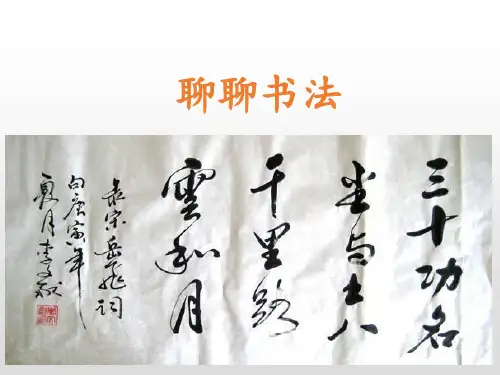 聊聊书法
三十功名
尘与土八
千里路
雲和月
录宋岳飞词
句庚寅年
夏月李